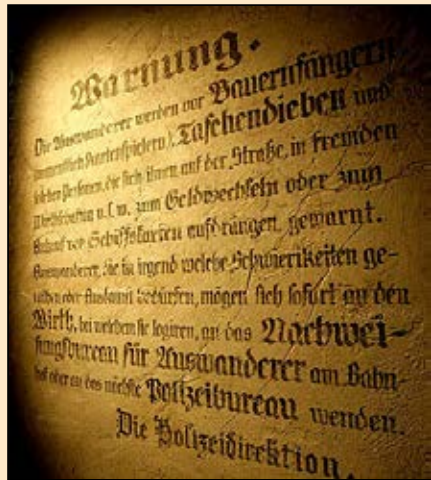 Warnung.
Die Auswanderer werden vor Bauernfängern,
(namentlich Kartenspielern), Taschendieben und
solchen Personen, die sich ihnen auf der Straße, in fremden
Wirthschaften u. s. w. zum Geldwechseln oder zum
Ankauf von Schiffskarten aufdrängen, gewarnt.
Auswanderer, die in irgend welche Schwierigkeiten ge-
rathen oder Auskunft bedürfen, mögen sich sofort an den
Wirth, bei welchem sie logiren, an das Nachwei-
sungsbureau für Auswanderer am Bahn-
hof oder an das nächste Polizeibureau wenden.
Die Polizeidirektion.